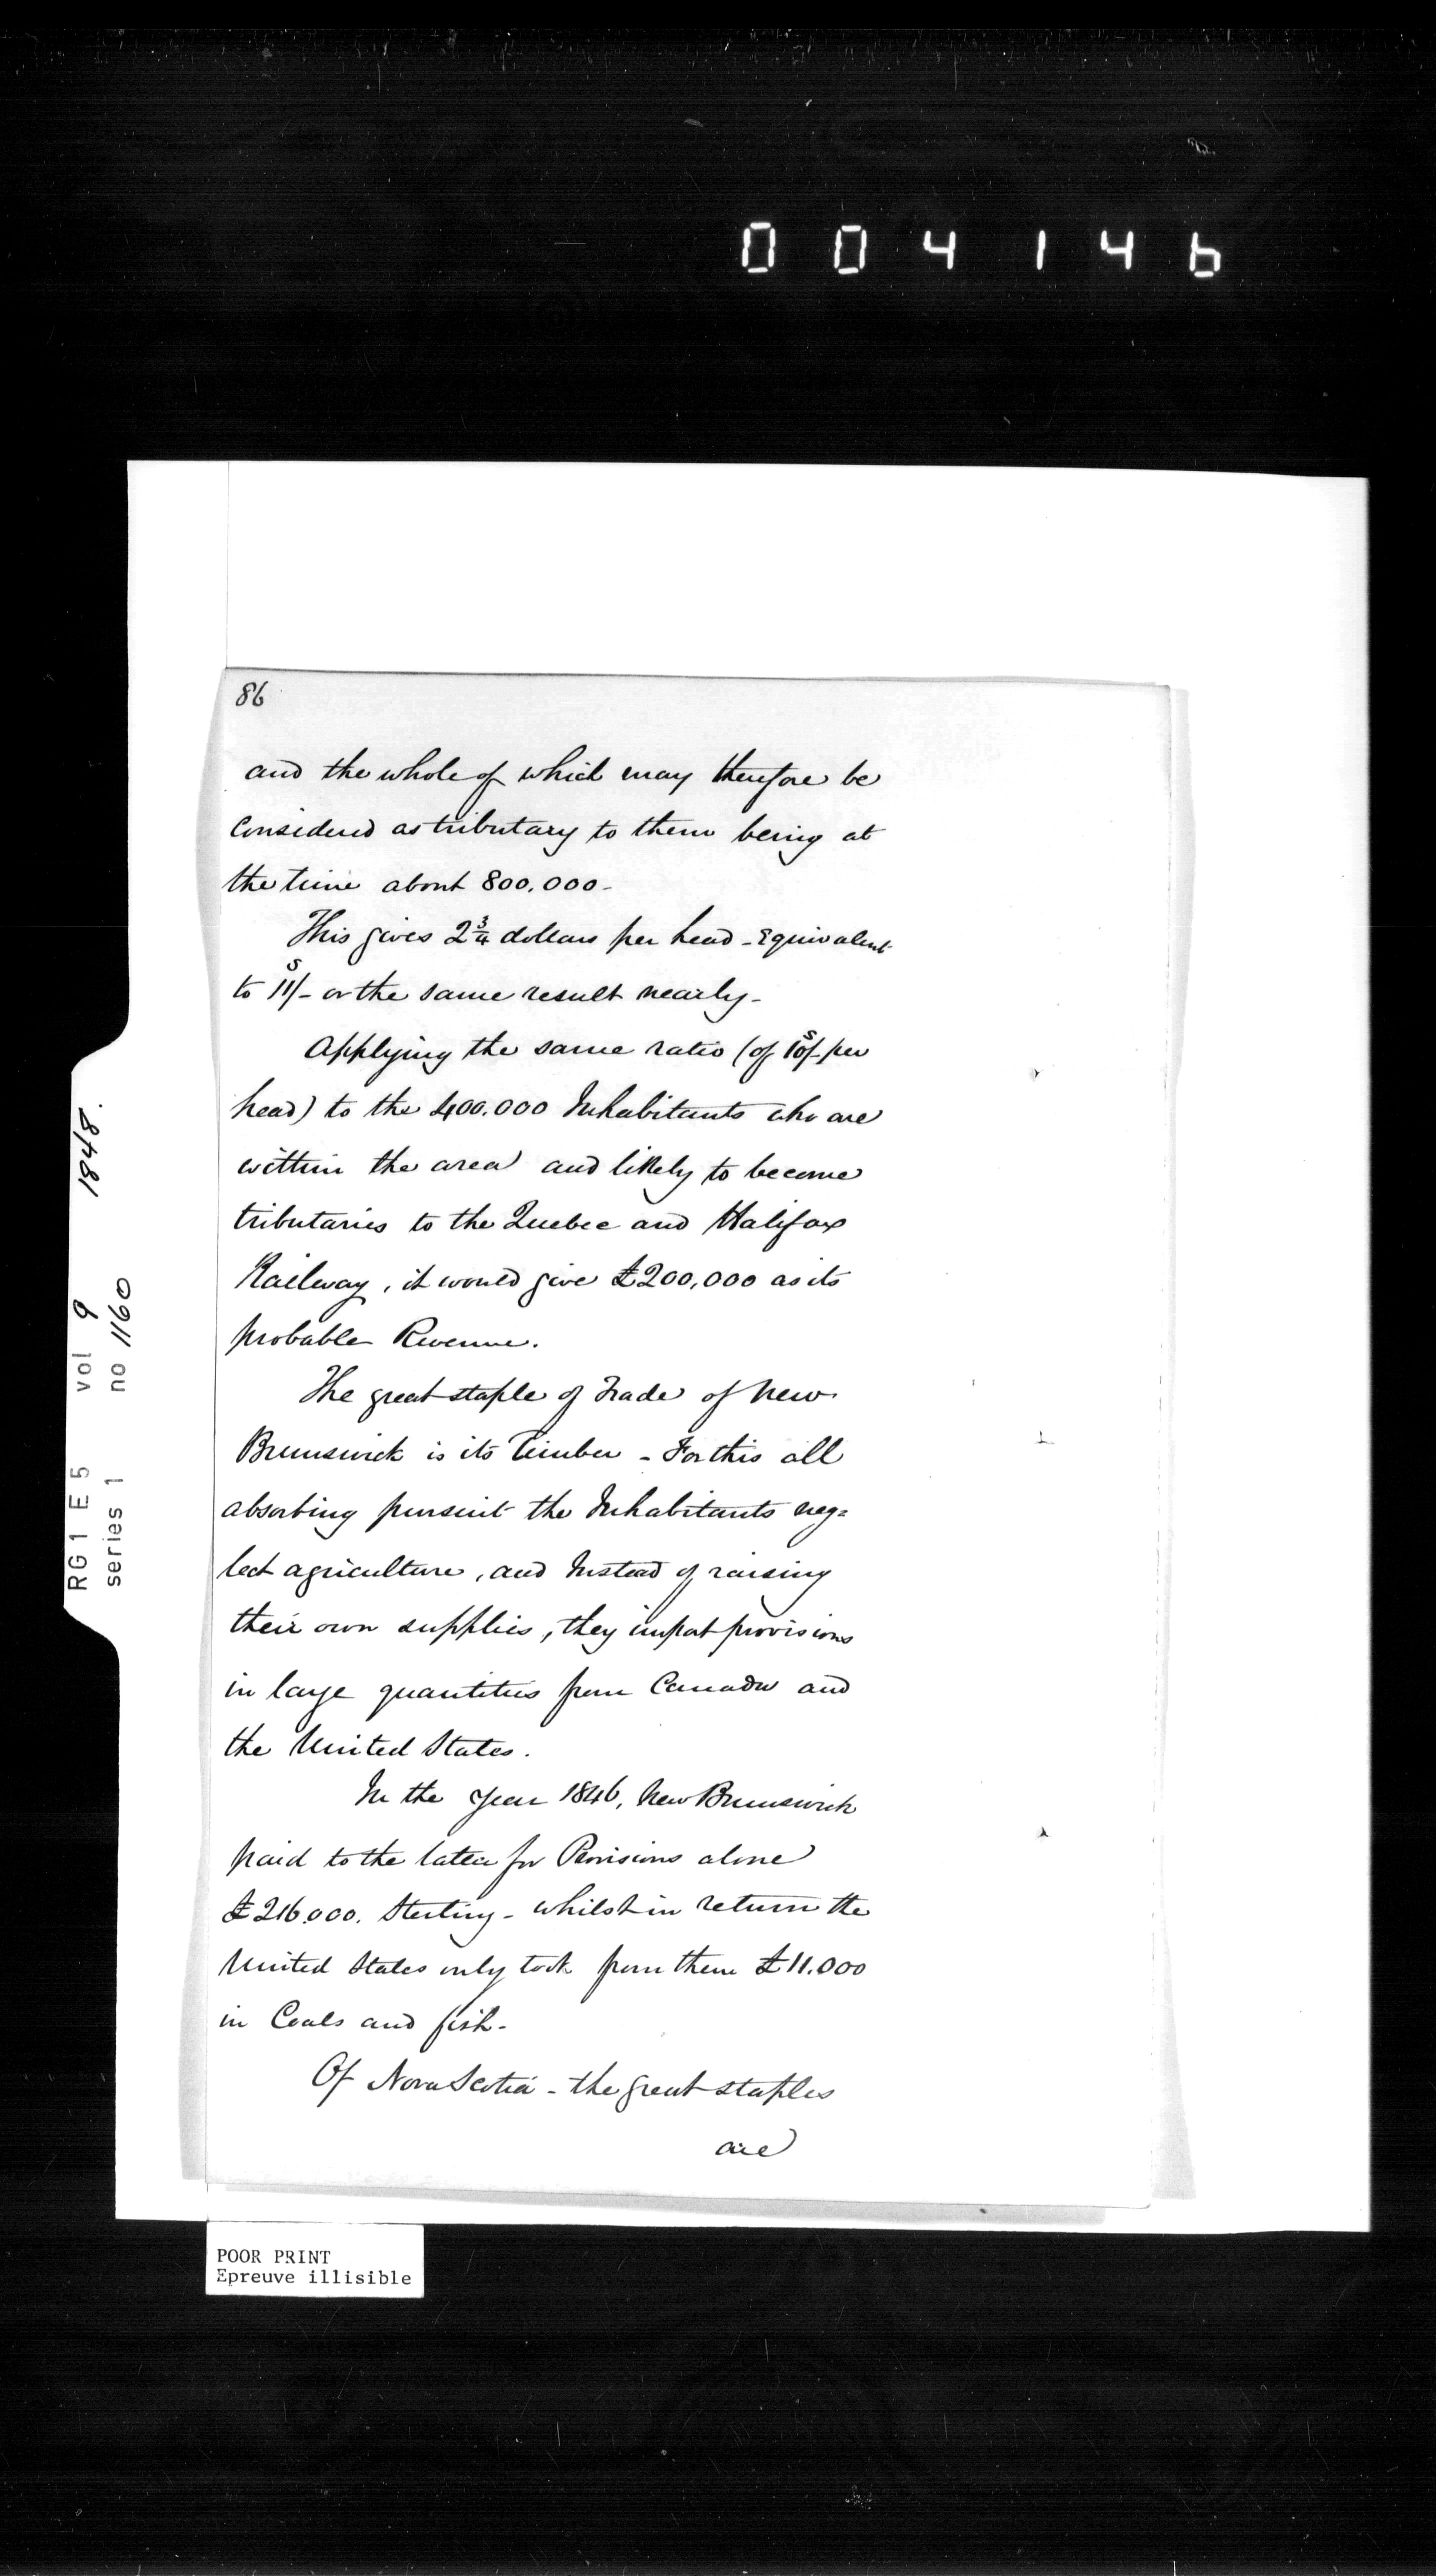 004146
86
and the whole of which may therefore be
considered as tributary to them being at
the time about 800,000-
This gives 2 3/4 dollars per head - Equivalent
to 11s/- or the same result nearly -
Applying the same ratio (of 10s/- per
head) to the 400.000 Inhabitants who are
within the area and likely to become
tributaries to the Quebec and Halifax
Railway, it would give £200,000 as its
probable Revenue.
The great staple of Trade of New
Brunswick is its Timber - For this all
absorbing pursuit the Inhabitants neg=
lect agriculture, and Instead of raising
their own supplies, they import provisions
in large quantities from Canada and
the United States.
In the Year 1846, New Brunswick
paid to the latter for Provisions alone
£216.000. Sterling - whilst in return the
United States only took from them £11.000
in Coals and fish -
Of Nova Scotia - the great staples
are
RG1 E5 vol 9 1848.
series 1 no 1160
POOR PRINT
Epreuve illisible